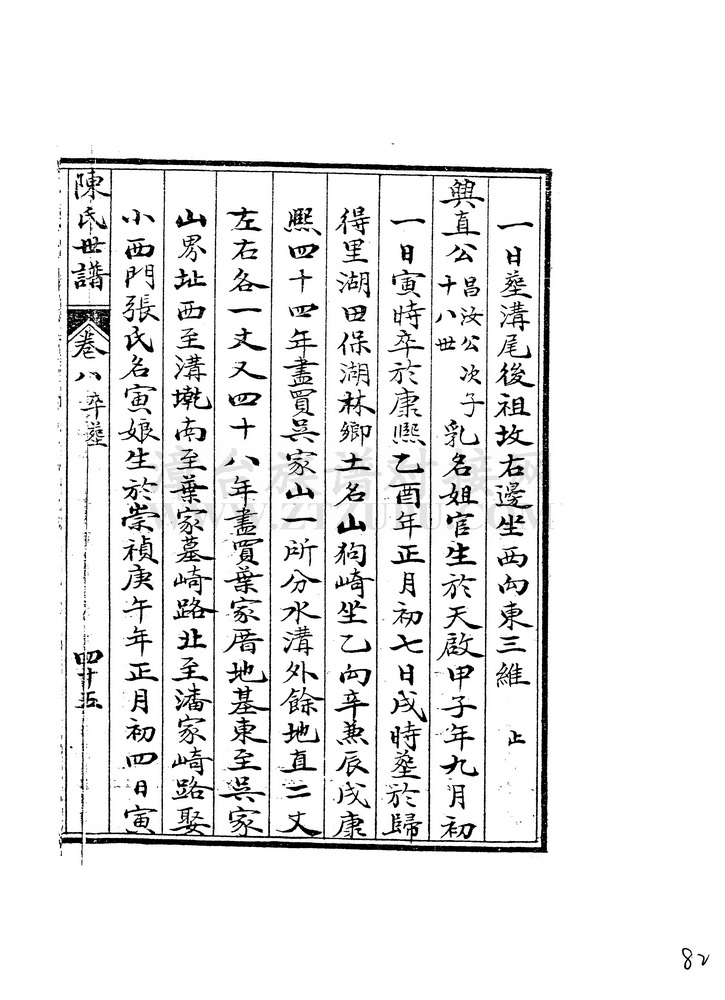 一日塟溝尾後祖坟右邊坐西向東三維 止
興直公 昌汝公次子 十八世 乳名姐官生於天啟甲子年九月初
一日寅時卒於康熙乙酉年正月初七日戌時塟於歸
得里湖田保湖林鄉土名山狗崎坐乙向辛兼辰戌康
熙四十四年盡買吳家山一所分水溝外餘地直二丈
左右各一丈又四十八年盡買葉家厝地基東至吳家
山界址西至溝墘南至葉家墓崎路北至潘家崎路娶
小西門張氏名寅娘生於崇禎庚午年正月初四日寅
陳氏世譜 卷八卒塟 四十五
82